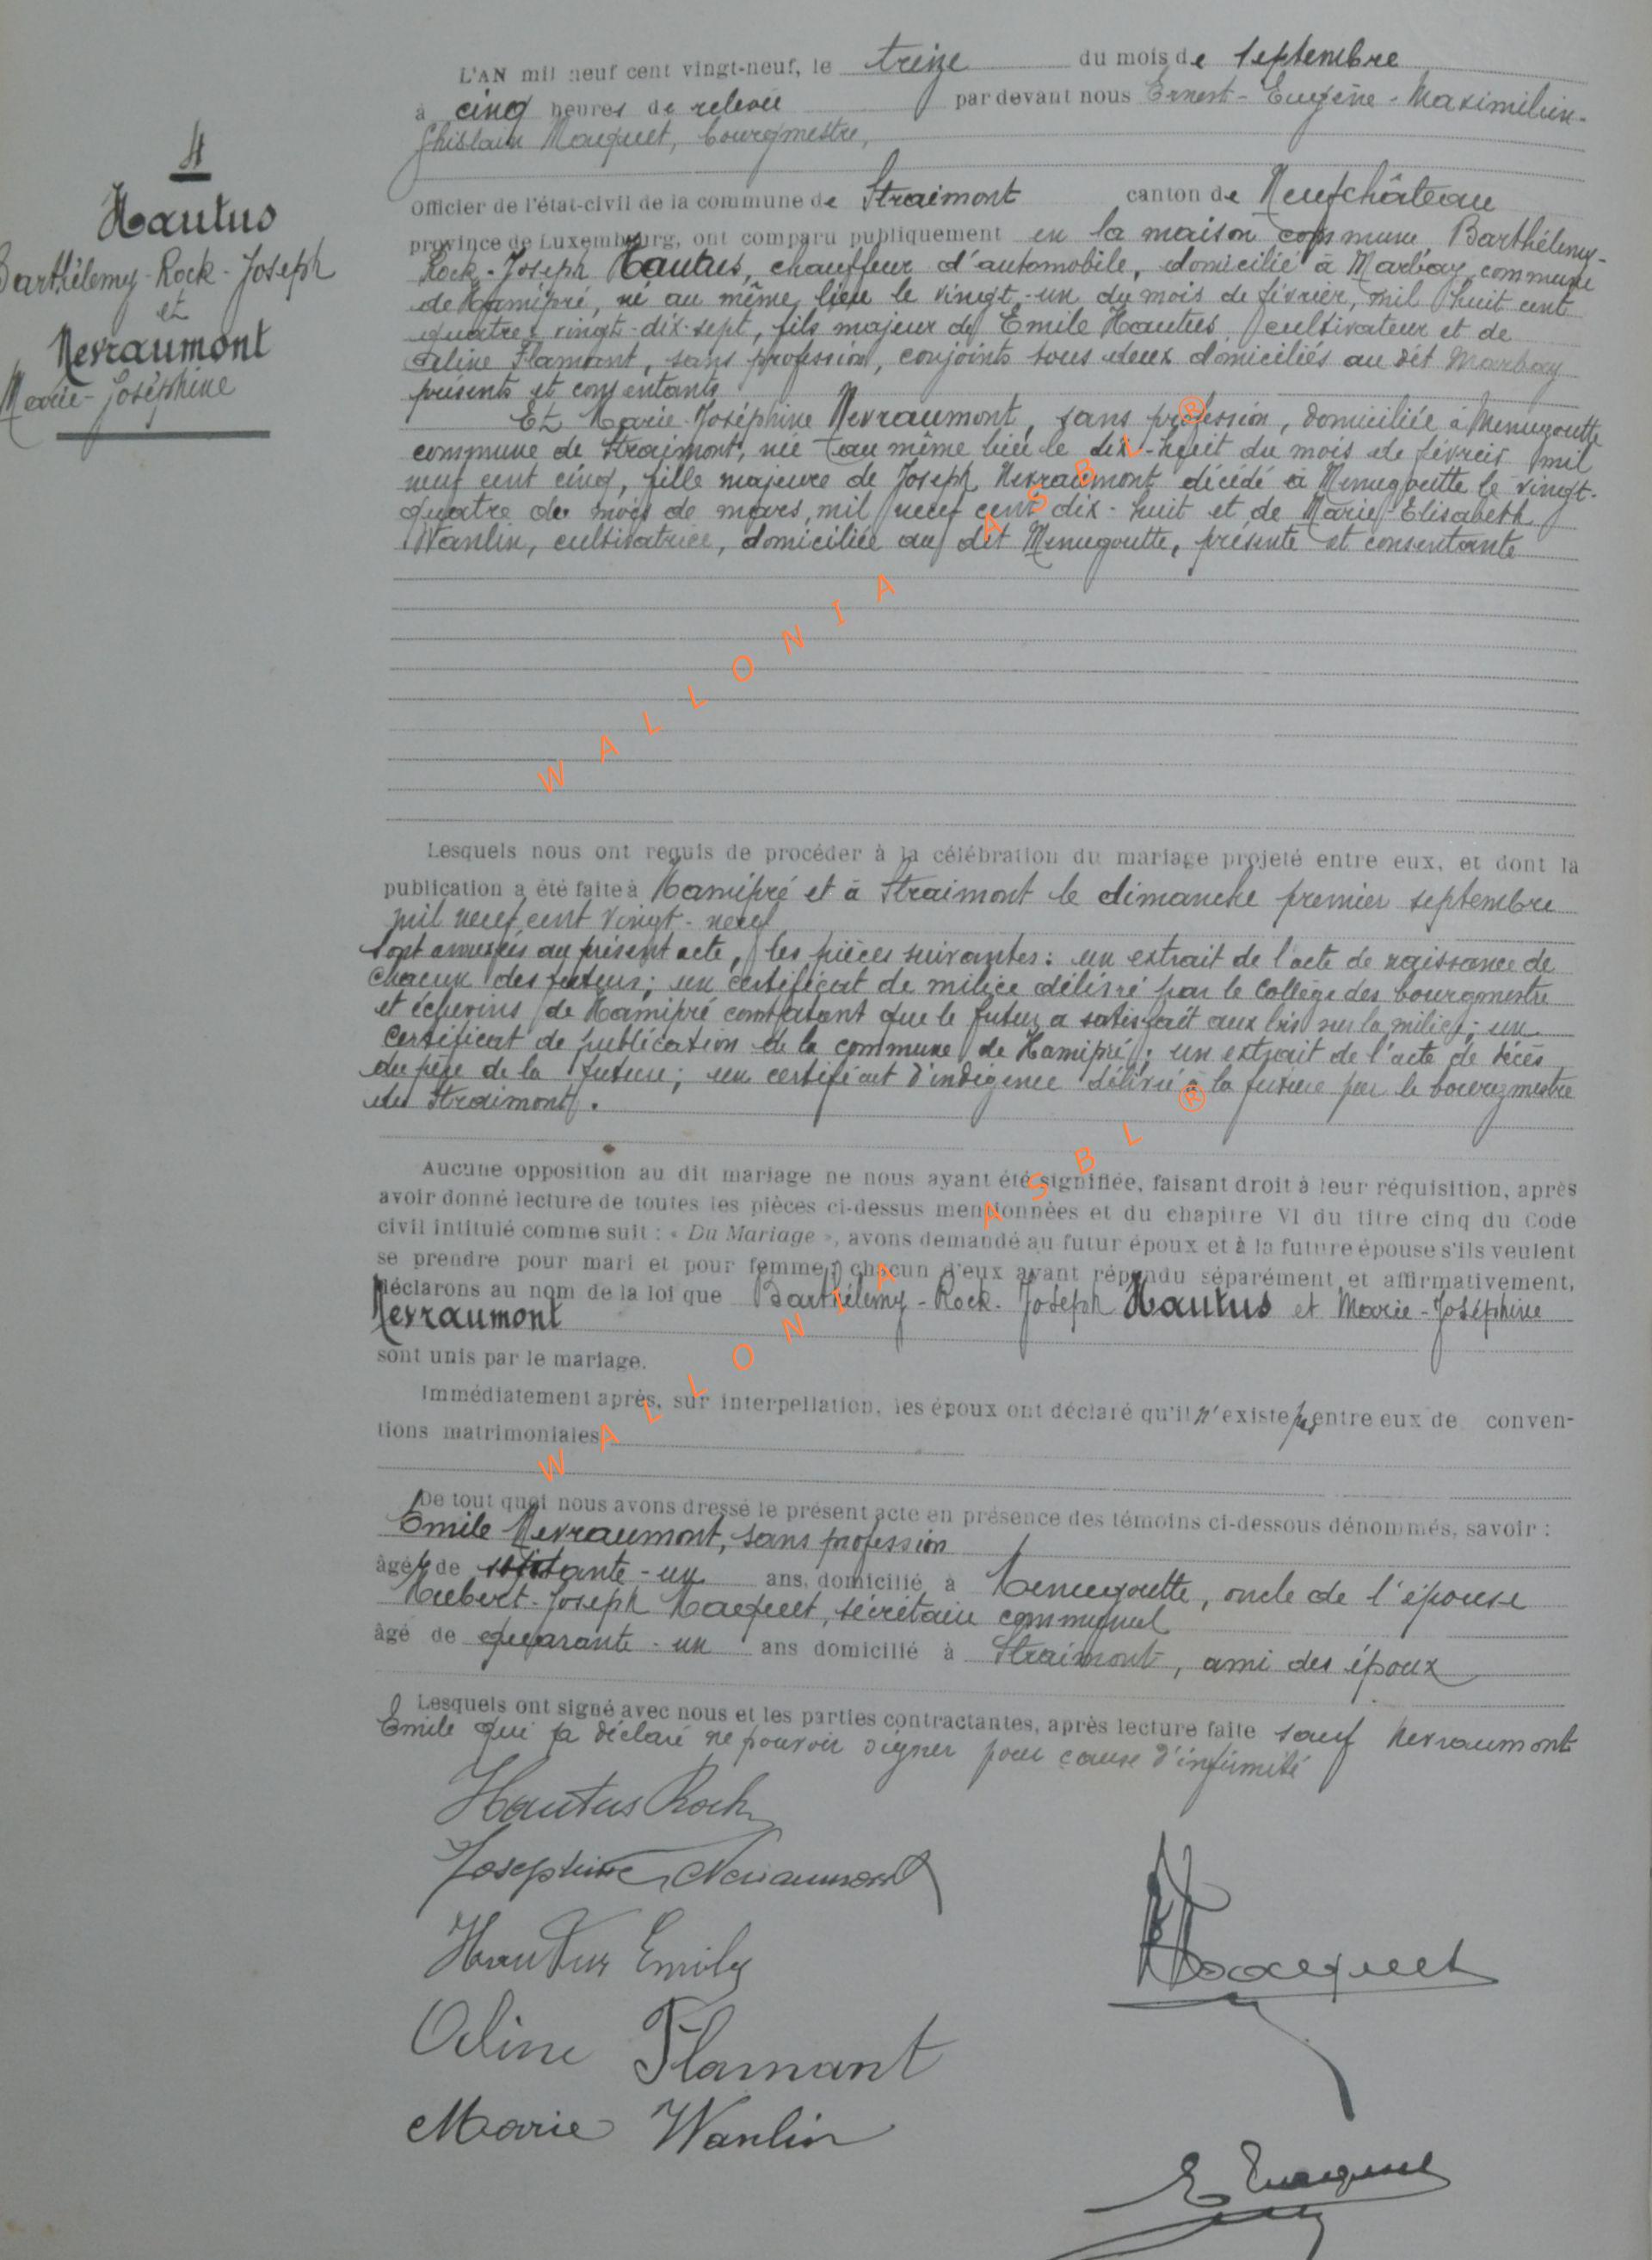 4
Hautus
Barthélemy-Rock-Joseph
et
Nevraumont
Marie-Joséphine
L'AN mil neuf cent vingt-neuf, le treize du mois de septembre
à cinq heures de relevée par devant nous Ernest-Eugène-Maximilien-
Ghislain Maquet, bourgmestre,
Officier de l'état-civil de la commune de Straimont canton de Neufchâteau
province de Luxembourg, ont comparu publiquement en la maison commune Barthélemy-
Rock-Joseph Hautus, chauffeur d'automobile, domicilié à Marbay, commune
de Hamipré, né au même lieu le vingt-un du mois de février, mil huit cent
quatre-vingt-dix-sept, fils majeur de Emile Hautus cultivateur et de
Aline Flamant, sans profession, conjoints tous deux domiciliés au dit Marbay
présents et consentants
Et Marie-Joséphine Nevraumont, sans profession, domiciliée à Menugoutte
commune de Straimont, née au même lieu le dix-huit du mois de février mil
neuf cent cinq, fille majeure de Joseph Nevraumont décédé à Menugoutte le vingt-
quatre du mois de mars, mil neuf cent dix-huit et de Marie-Elisabeth
Wanlin, cultivatrice, domiciliée au dit Menugoutte, présente et consentante
Lesquels nous ont requis de procéder à la célébration du mariage projeté entre eux, et dont la
publication a été faite à Hamipré et à Straimont le dimanche premier septembre
mil neuf cent vingt-neuf
Sont annexés au présent acte, les pièces suivantes: un extrait de l'acte de naissance de
chacun des futurs; un certificat de milice délivré par le Collège des bourgmestre
et échevins de Hamipré constatant que le futur a satisfait aux lois sur la milice; un
certificat de publication de la commune de Hamipré; un extrait de l'acte de décès
du père de la future; un certificat d'indigence délivré à la future par le bourgmestre
de Straimont.
Aucune opposition au dit mariage ne nous ayant été signifiée, faisant droit à leur réquisition, après
avoir donné lecture de toutes les pièces ci-dessus mentionnées et du chapitre VI du titre cinq du Code
civil intitulé comme suit : « Du Mariage », avons demandé au futur époux et à la future épouse s'ils veulent
se prendre pour mari et pour femme, chacun d'eux ayant répondu séparément et affirmativement,
déclarons au nom de la loi que Barthélemy-Rock-Joseph Hautus et Marie-Joséphine
Nevraumont
sont unis par le mariage.
Immédiatement après, sur interpellation, les époux ont déclaré qu'il n'existe pas entre eux de conven-
tions matrimoniales
De tout quoi nous avons dressé le présent acte en présence des témoins ci-dessous dénommés, savoir :
Emile Nevraumont, sans profession
âgé de soixante-un ans, domicilié à Menugoutte, oncle de l'épouse
Hubert-Joseph Maquet, secrétaire communal
âgé de quarante-un ans domicilié à Straimont, ami des époux
Lesquels ont signé avec nous et les parties contractantes, après lecture faite sauf Nevraumont
Emile qui a déclaré ne pouvoir signer pour cause d'infirmité
Hautus Roch
Joséphine Nevraumont
Hautus Emile
Maquet
Aline Flamant
Marie Wanlin
E Maquet
WALLONIA ASBL ®
WALLONIA ASBL ®